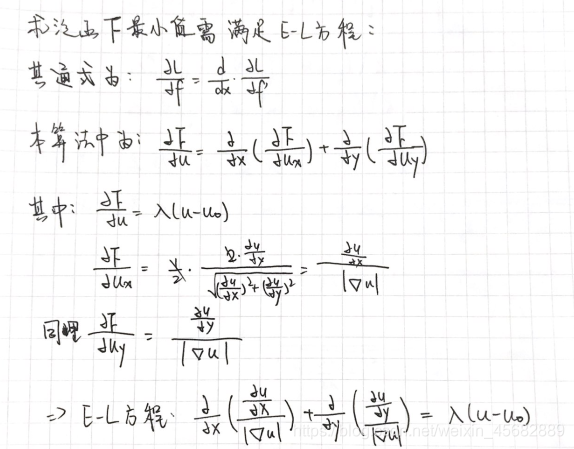 求泛函下最小值需满足E-L方程：
其通式为： ∂L/∂f = d/dx · ∂L/∂f'
本算法中为： ∂F/∂u = ∂/∂x (∂F/∂ux) + ∂/∂y (∂F/∂uy)
其中： ∂F/∂u = λ(u-u₀)
∂F/∂ux = 1/2 · 2·∂u/∂x / √((∂u/∂x)²+(∂u/∂y)²) = ∂u/∂x / |∇u|
同理 ∂F/∂uy = ∂u/∂y / |∇u|
=> E-L方程： ∂/∂x (∂u/∂x / |∇u|) + ∂/∂y (∂u/∂y / |∇u|) = λ(u-u₀)
https://blog.csdn.net/weixin_45682889